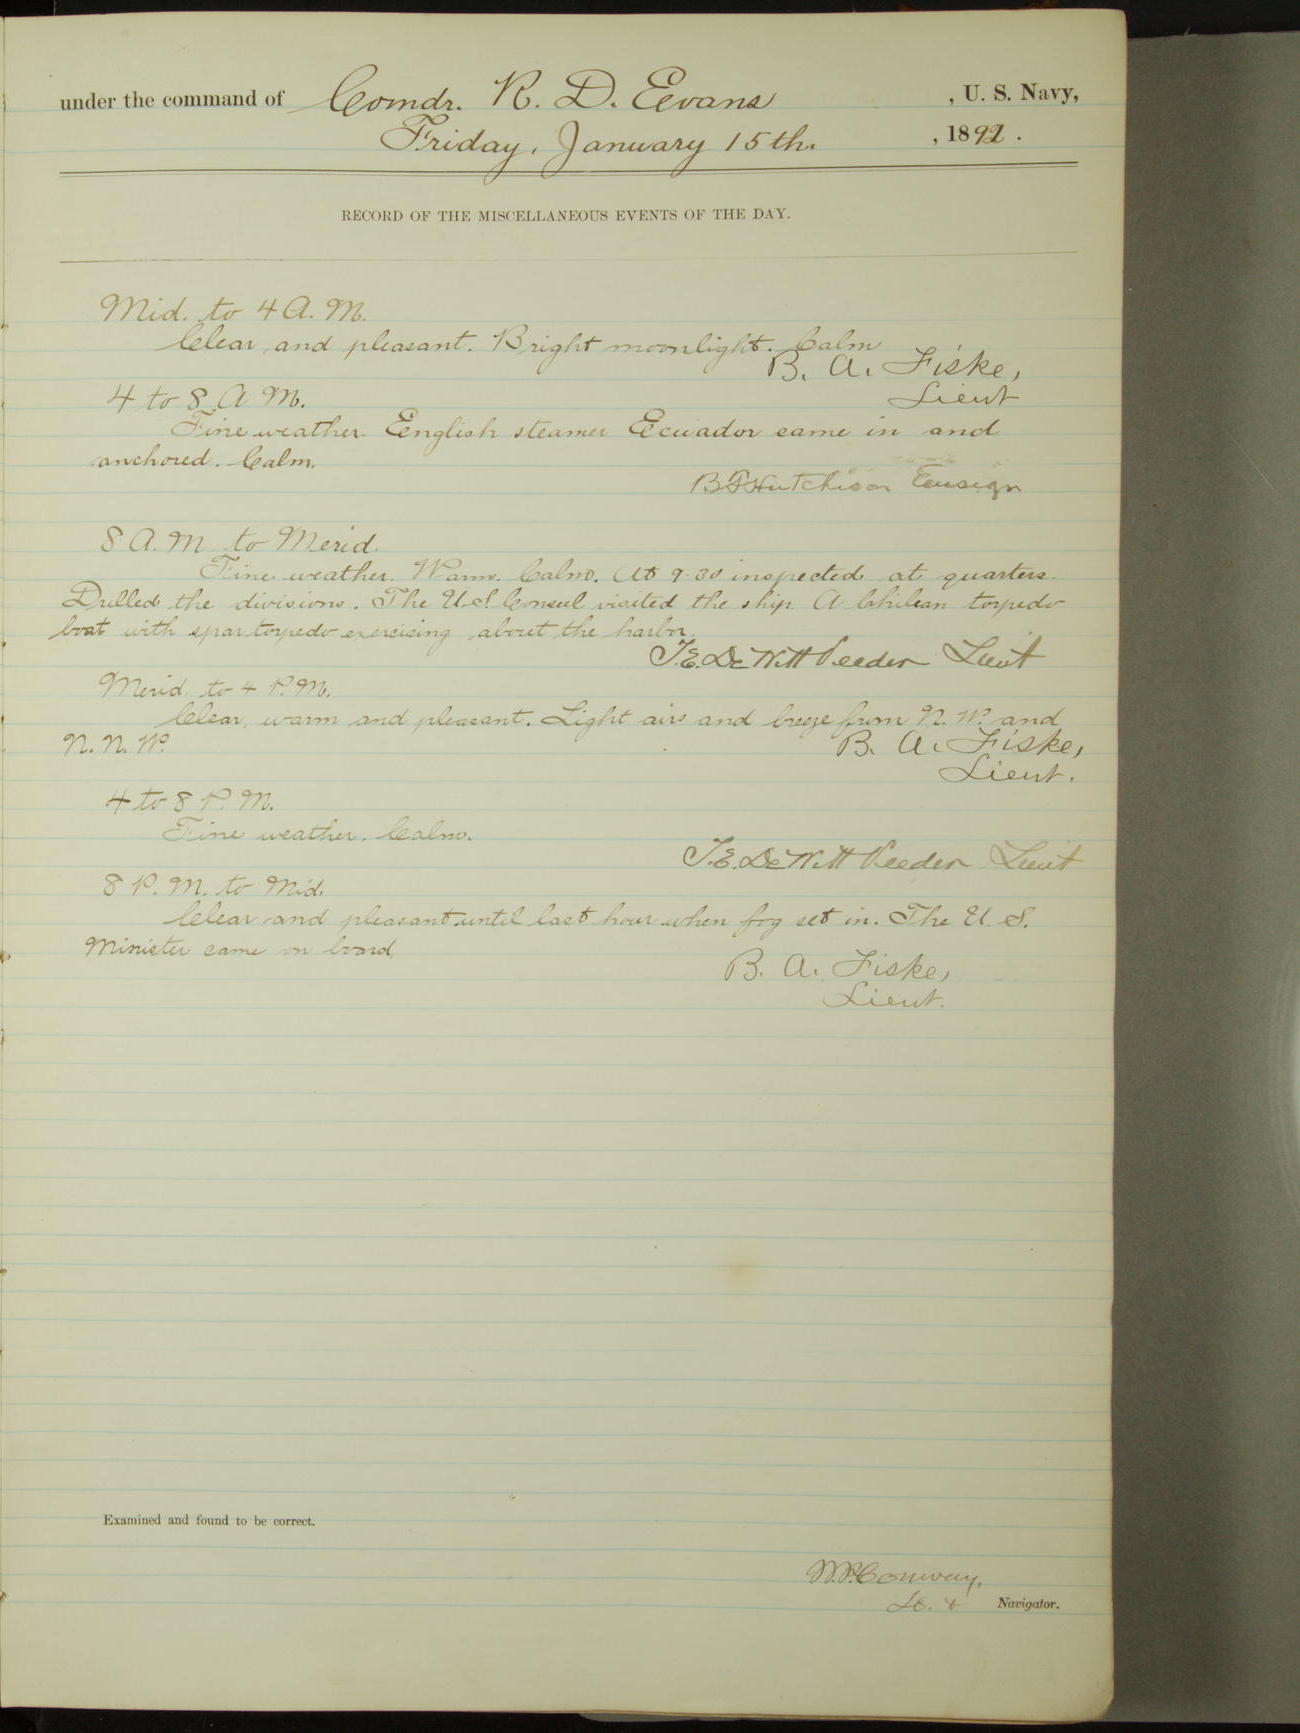 under the command of Comdr. R. D. Evans , U. S. Navy,
Friday, January 15th. , 1892.
RECORD OF THE MISCELLANEOUS EVENTS OF THE DAY.
Mid. to 4 A. M.
Clear and pleasant. Bright moonlight. Calm
B. A. Fiske,
Lieut
4 to 8 A M.
Fine weather. English steamer Ecuador came in and
anchored. Calm.
B F Hutchison Ensign
8 A. M to Merid.
Fine weather. Warm. Calm. At 9.30 inspected at quarters.
Drilled the divisions. The U.S. Consul visited the ship. A Chilean torpedo
boat with spar torpedo exercising about the harbor.
T.E. DeWitt Veeder Lieut
Merid. to 4 P. M.
Clear, warm and pleasant. Light airs and breeze from N. W. and
N. N. W.
B. A. Fiske,
Lieut.
4 to 8 P. M.
Fine weather. Calm.
T.E. DeWitt Veeder Lieut
8 P. M. to Mid.
Clear and pleasant until last hour when fog set in. The U. S.
Minister came on board.
B. A. Fiske,
Lieut.
Examined and found to be correct.
W.P. Conway,
Lt. & Navigator.